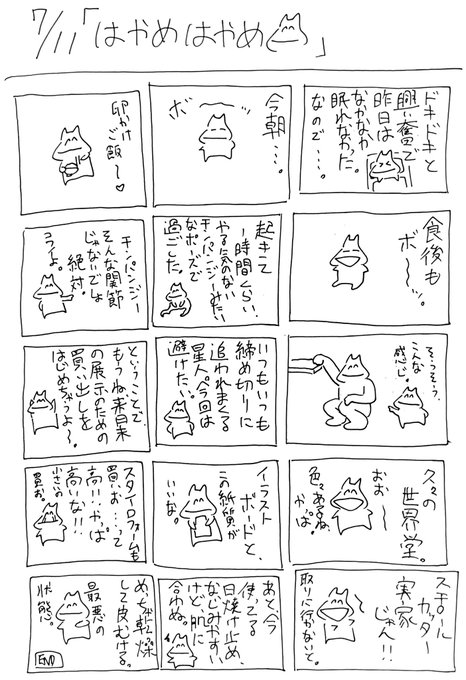 7/11「はやめはやめ」
ドキドキと
興奮で
昨日は
なかなか
眠れなかった。
なので……。
今朝…。
ボ〜〜
卵かけ
ご飯〜♡
食後も
ボ〜〜ッ。
起きて
一時間くらい、
やる気のない
チンパンジーみたい
なポーズで
過ごした。
チンパンジー
そんな関節
じゃないでしょ
絶対。
コラよ。
そうそう、
こんな
感じ。
いつもいつも
締め切りに
追われまくる
今回は
避けたい。
ということで、
もうね
の展示のための
買い出しを
はじめちゃうよ〜。
久々の
世界堂。
おお〜
色々あるね、
やっぱ。
イラスト
ボードと、
この紙質が
いいな。
スタイロフォームも
買お。…って
高!!やっぱ
高いな!!
小さいの
買お。
スチロール
カッター
実家
じゃん!!
取りに行かないと。
あと、今
使ってる
日焼け止め、
なじみやすい
けど、肌に
合わぬ。
めっちゃ乾燥
して皮むける。
最悪の
状態。
END